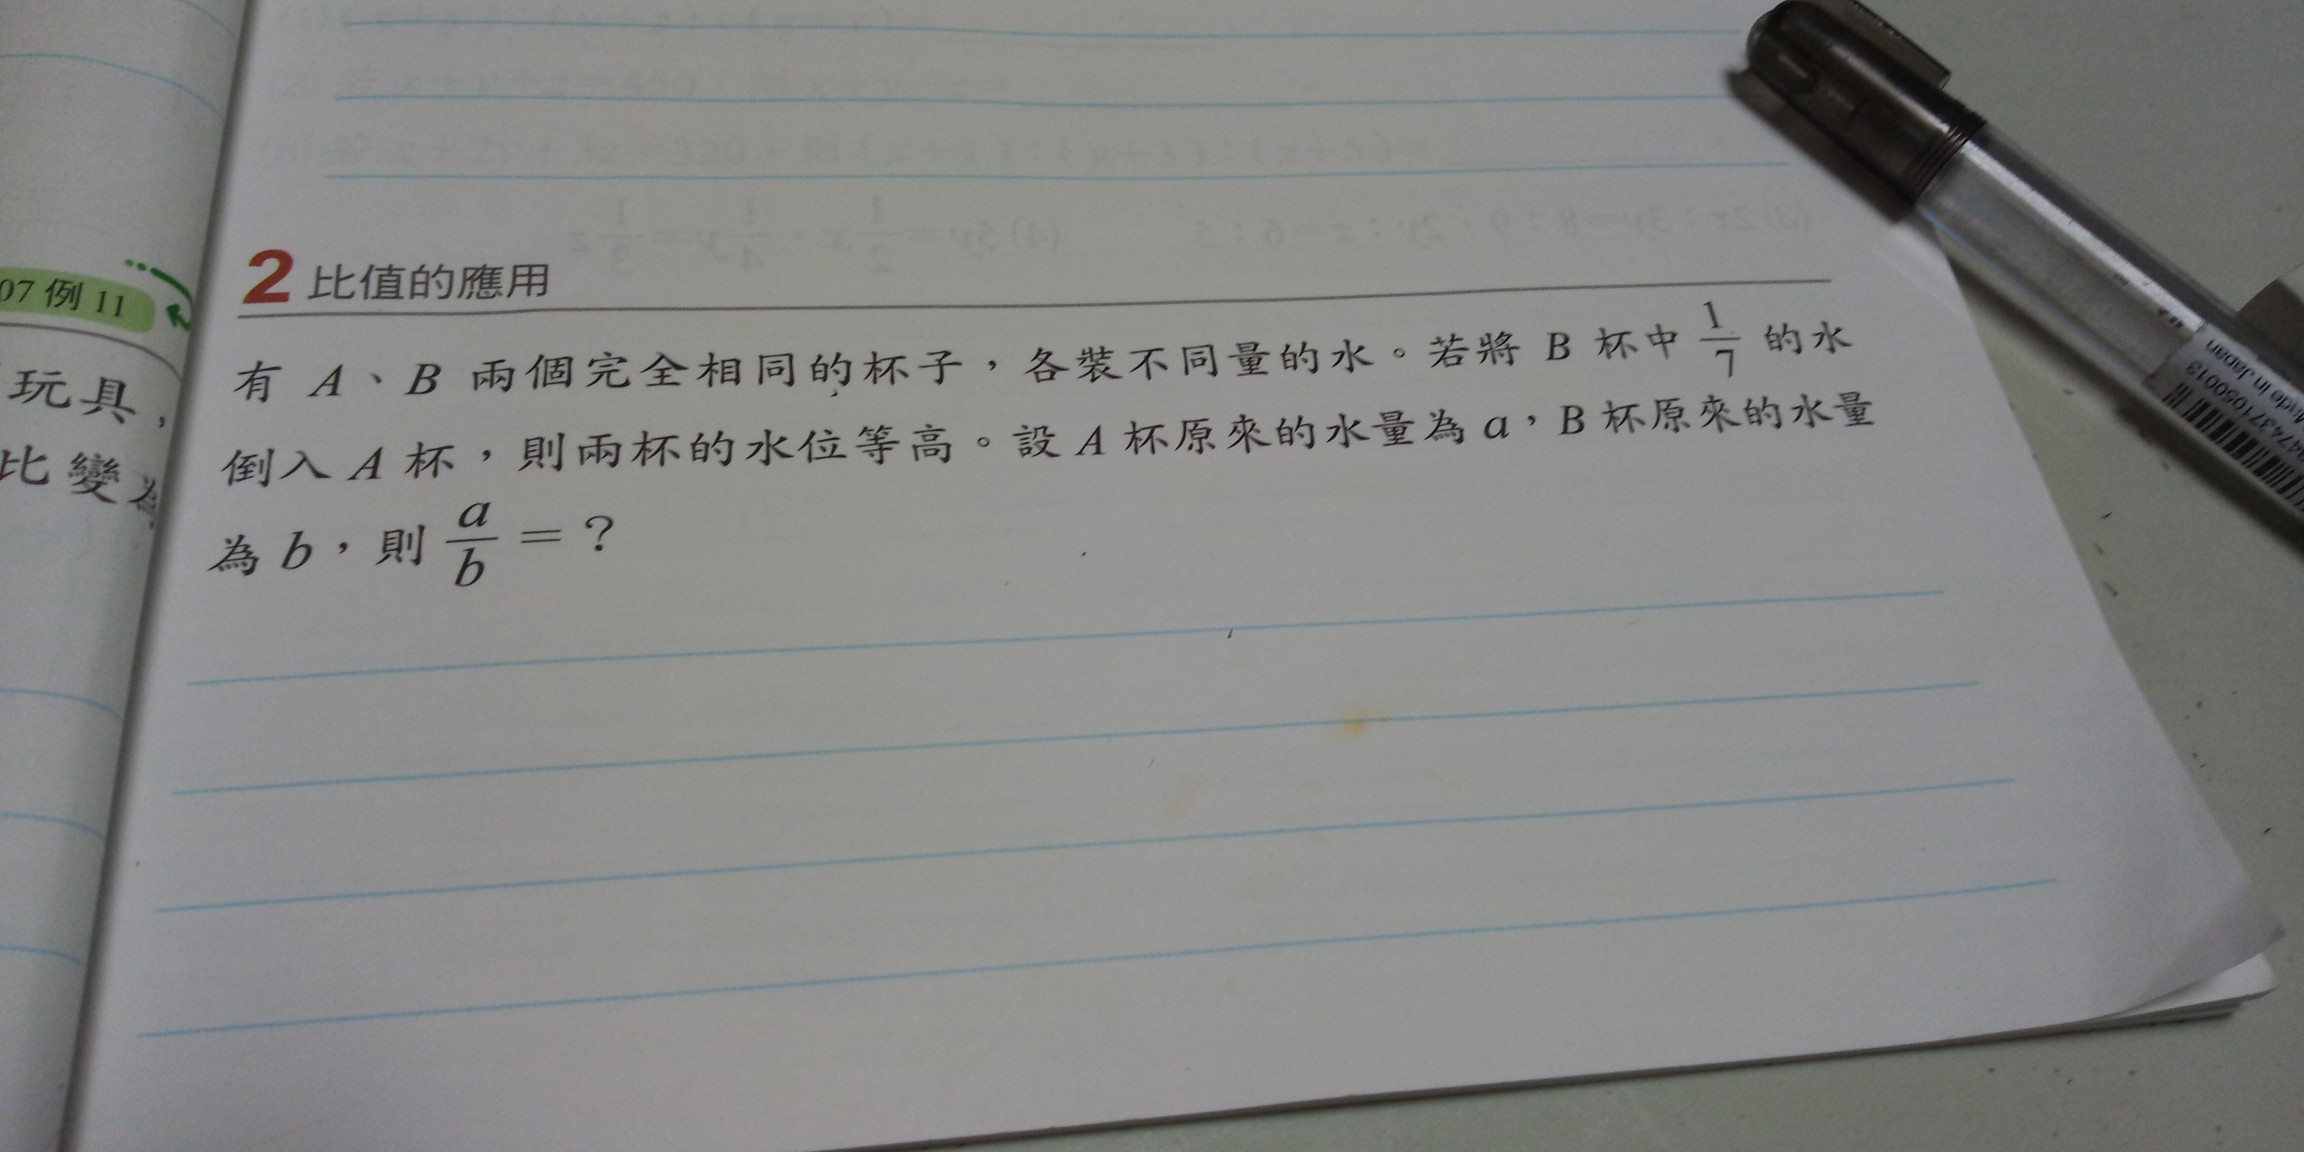 07 例 11
玩具，
比變為
2 比值的應用
有 A、B 兩個完全相同的杯子，各裝不同量的水。若將 B 杯中 1/7 的水
倒入 A 杯，則兩杯的水位等高。設 A 杯原來的水量為 a，B 杯原來的水量
為 b，則 a/b = ？
Made in Japan